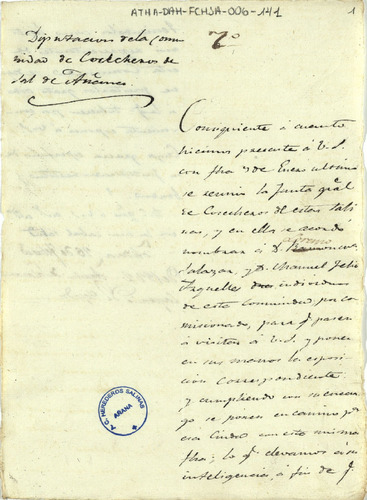 ATHA-DAH-FCHSA-006-141
1
7º
Diputacion dela Comu
nidad de Cosecheros de
Sal de Añana
Consiguiente á cuanto
hicimos presente á V.S.
con fha de Enero ultimo
se reunio la Junta gral
de Cosecheros de estas Sali
nas, y en ella se acordó
nombrar á D.
Salazar, y D. Manuel Felix
Arguelles individuos
de esta comunidad por co
misionado, para q. pasen
á visitar á V.S. y poner
en sus manos la exposi
cion correspondiente
y cumpliendo con su encar
go se ponen en camino pa
esa Ciudad con esta misma
fha: lo q. elevamos á su
inteligencia, á fin de q.
A.C. HEREDEROS SALINAS
AÑANA